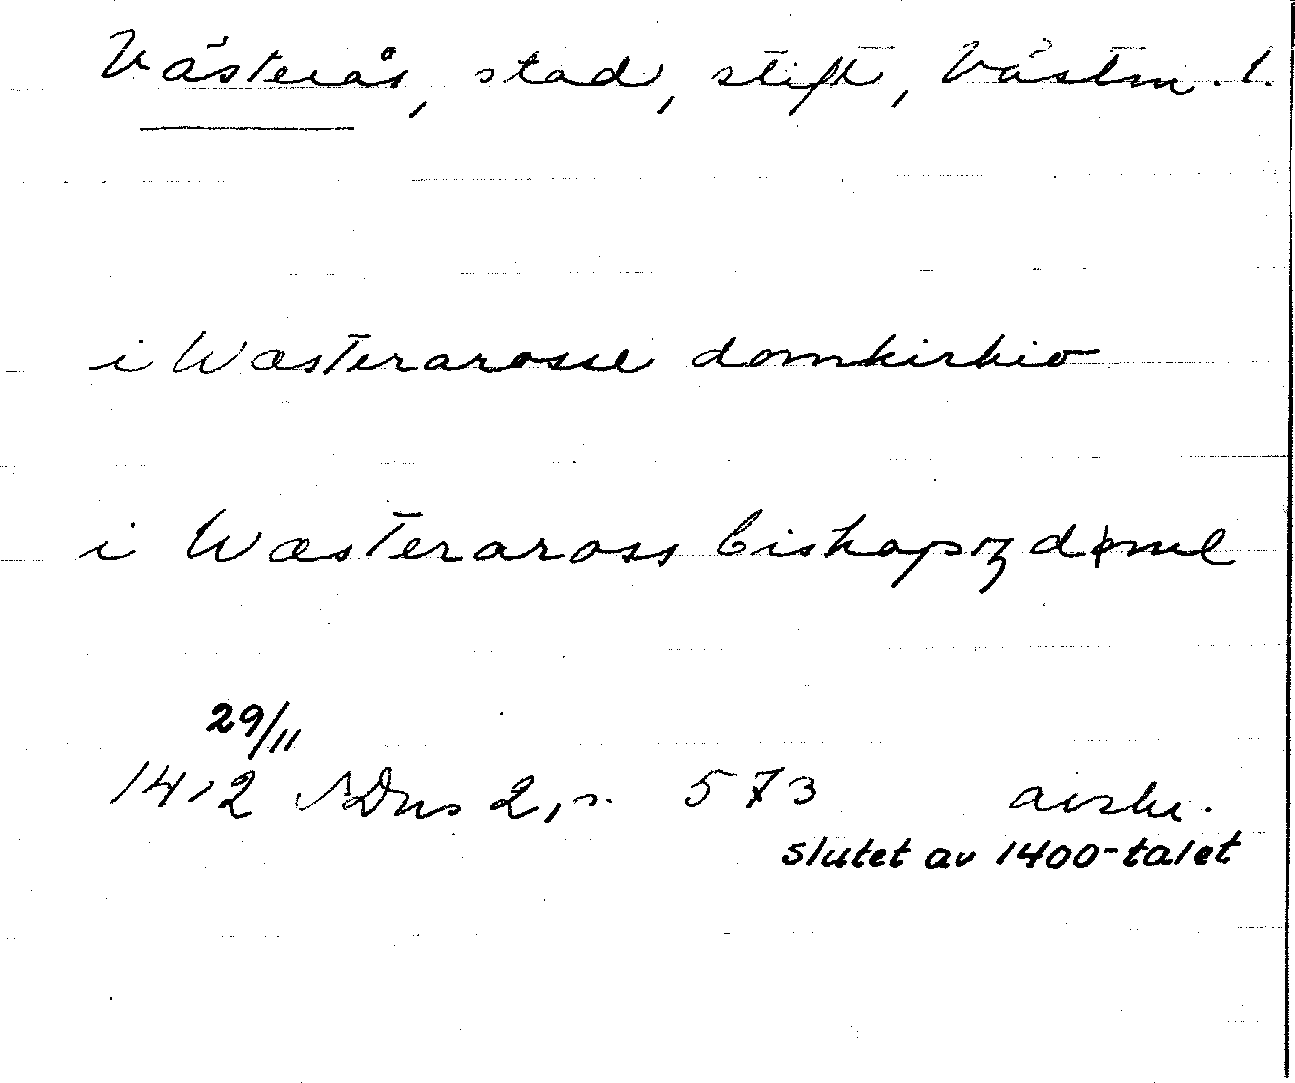 Västerås, stad, stift, Västm. l.
i Wæsterarosse domkirkio
i Wæsteraross biskopz døme
29/11
1412 SDns 2, s. 573 avskr.
slutet av 1400-talet